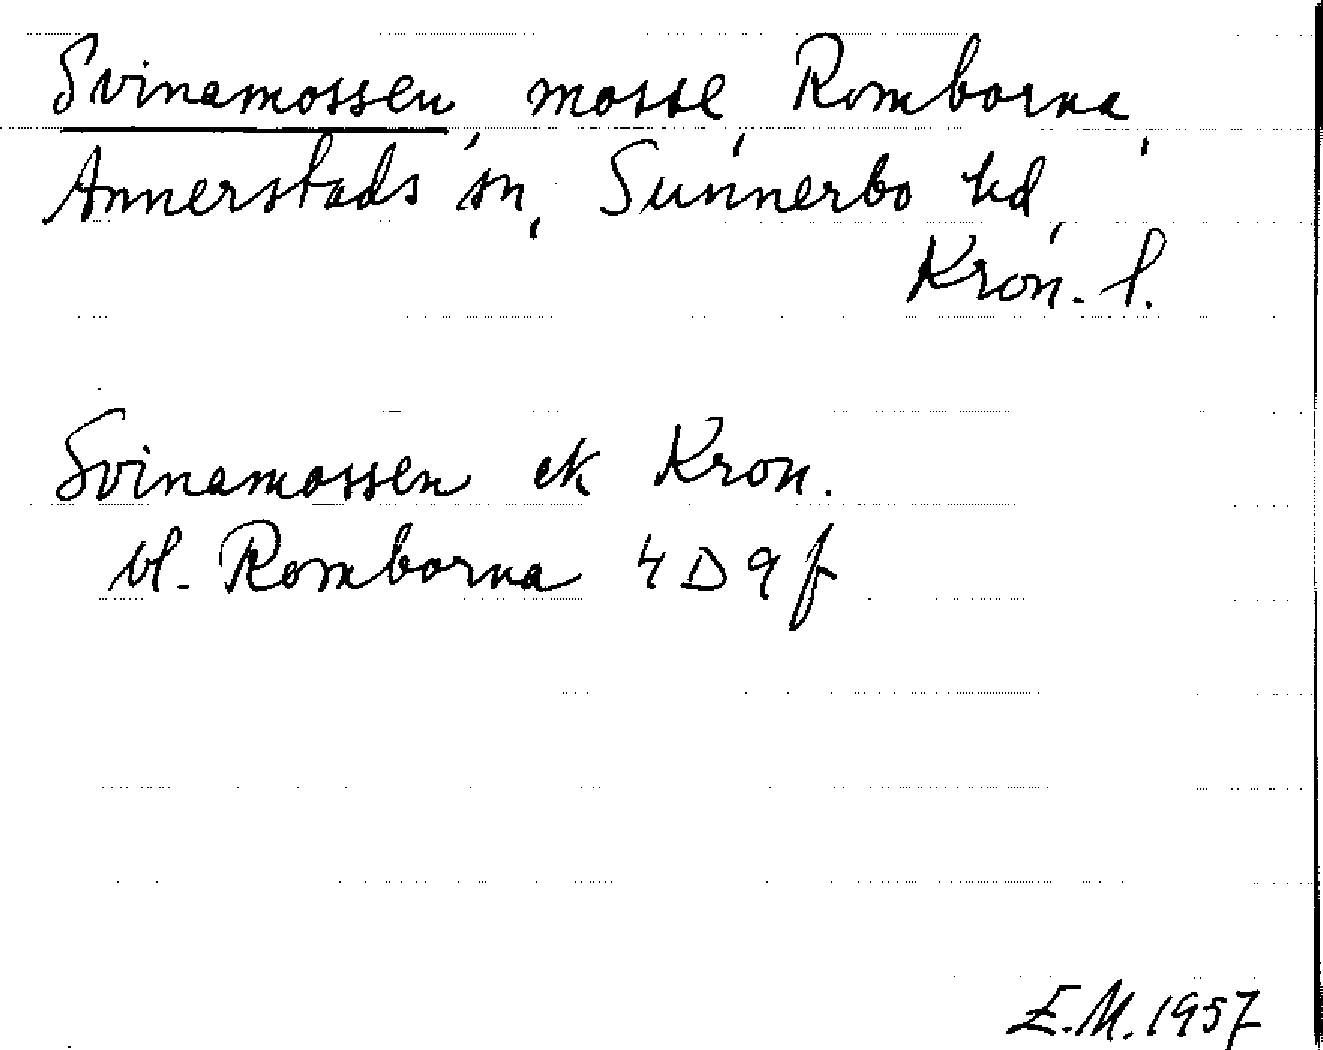 Svinamossen, mosse, Romborna,
Annerstads sn, Sunnerbo hd,
Kron. l.
Svinamossen ek Kron.
bl. Romborna 4D9f
E.M. 1957